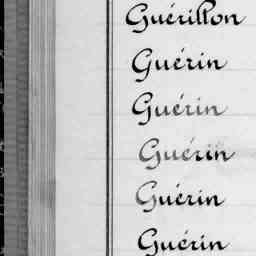 Guérillon
Guérin
Guérin
Guérin
Guérin
Guérin